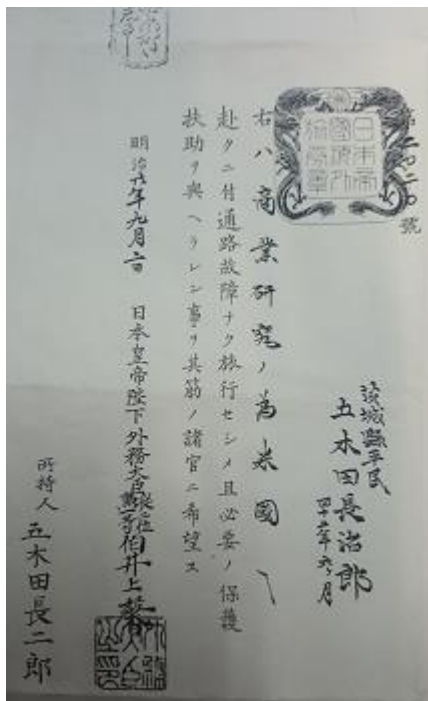 第二〇二〇號
日本帝
國海外
旅券章
茨城縣平民
五木田長治郎
右ハ商業研究ノ為米國ヘ
赴クニ付通路故障ナク旅行セシメ且必要ノ保護
扶助ヲ與ヘラレン事ヲ其筋ノ諸官ニ希望ス
明治廿年九月 日本皇帝陛下外務大臣從二位勲一等伯井上馨
外務大臣之印
所持人 五木田長二郎